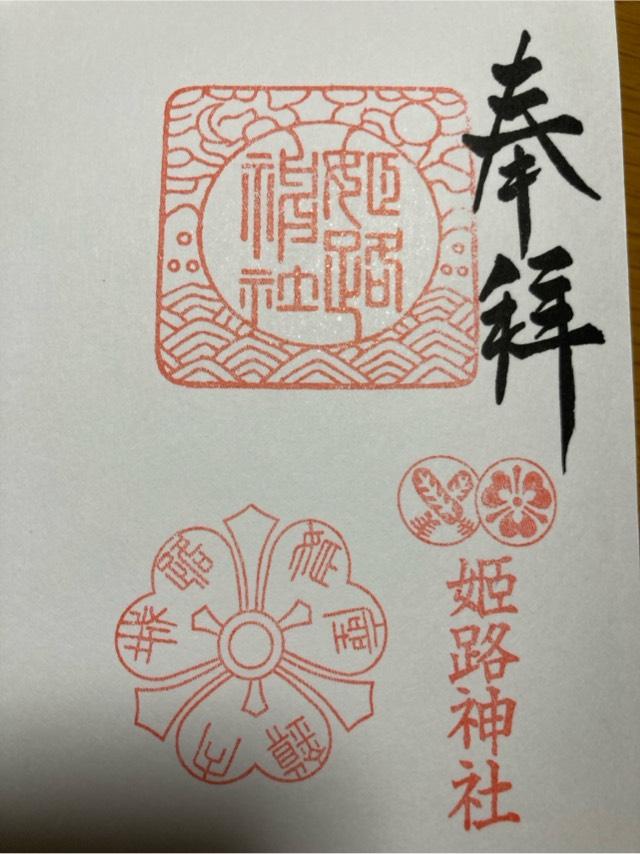 奉拝
姫路神社
姫路
神社